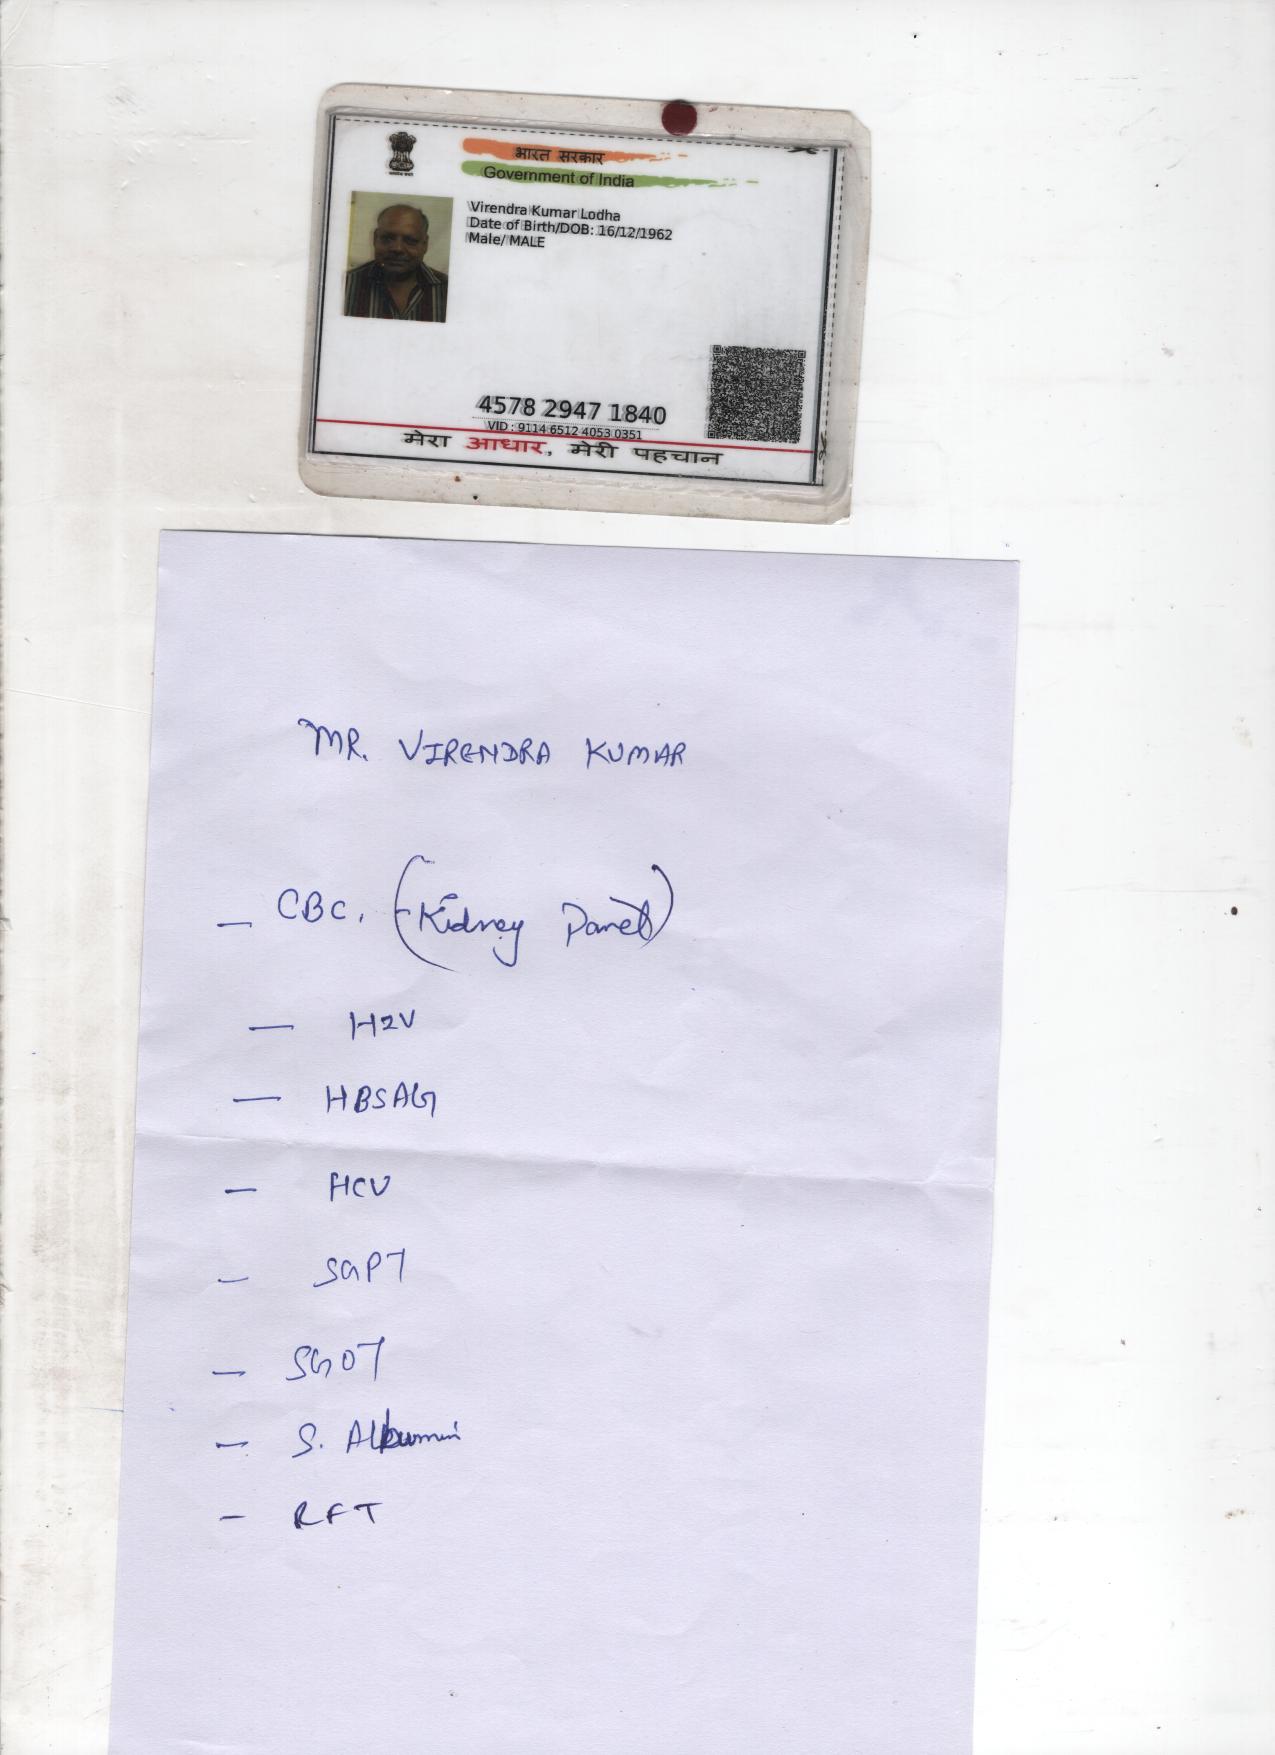 भारत सरकार
Government of India
Virendra Kumar Lodha
Date of Birth/DOB: 16/12/1962
Male/ MALE
4578 2947 1840
VID : 9114 6512 4053 0351
मेरा आधार, मेरी पहचान
MR. VIRENDRA KUMAR
— CBC. (Kidney Panel)
— H2V
— HBSAG
— HCV
— SGPT
— SGOT
— S. Albumin
— RFT